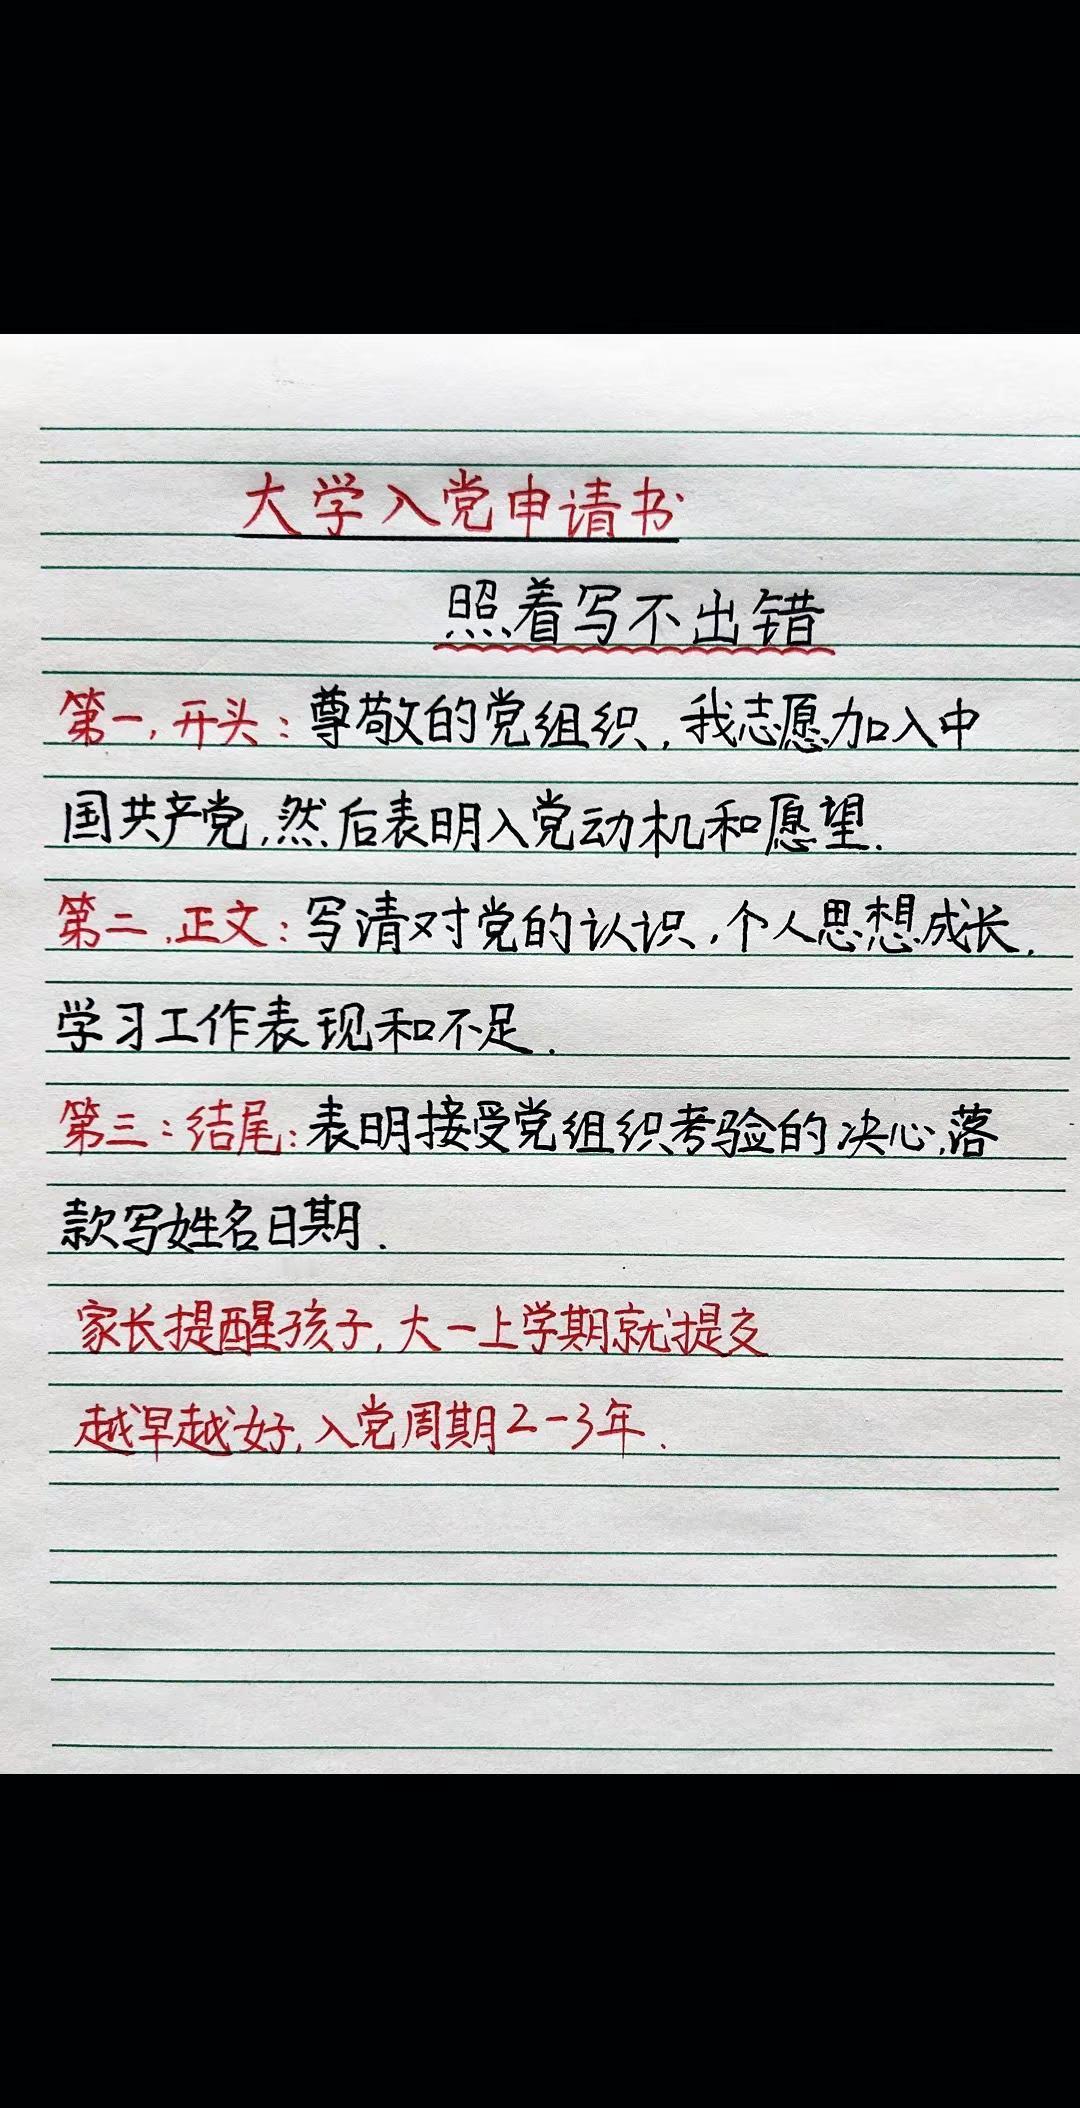 大学入党申请书
照着写不出错
第一,开头:尊敬的党组织,我志愿加入中
国共产党,然后表明入党动机和愿望.
第二,正文:写清对党的认识,个人思想成长,
学习工作表现和不足.
第三:结尾:表明接受党组织考验的决心,落
款写姓名日期.
家长提醒孩子,大一上学期就提交
越早越好,入党周期2-3年.